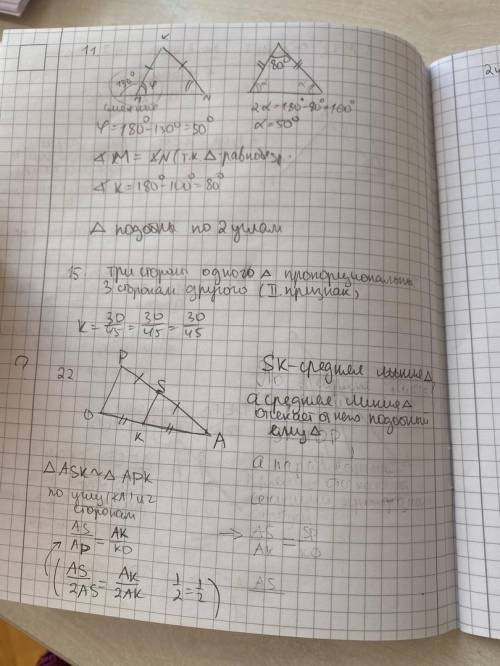 11
K
130°
φ
N
смежные
80°
φ = 180° - 130° = 50°
2α = 180° - 80° = 100°
α = 50°
∢ M = ∢ N (т.к. Δ - равнобедр.
∢ K = 180° - 100° = 80°
Δ подобны по 2 углам
15. Три стороны одного Δ пропорциональны
3 сторонам другого (III признак)
K = 30/45 = 30/45 = 30/45
22
P
S
O
K
A
SK - средняя линия Δ,
а средняя линия Δ
отсекает от него подобный
ему Δ
Δ ASK ~ Δ APK
по углу (∢A) и 2
сторонам
AS/AP = AK/KO
(AS/2AS = AK/2AK 1/2 = 1/2)
→ AS/AK = SP/KO
AS
24